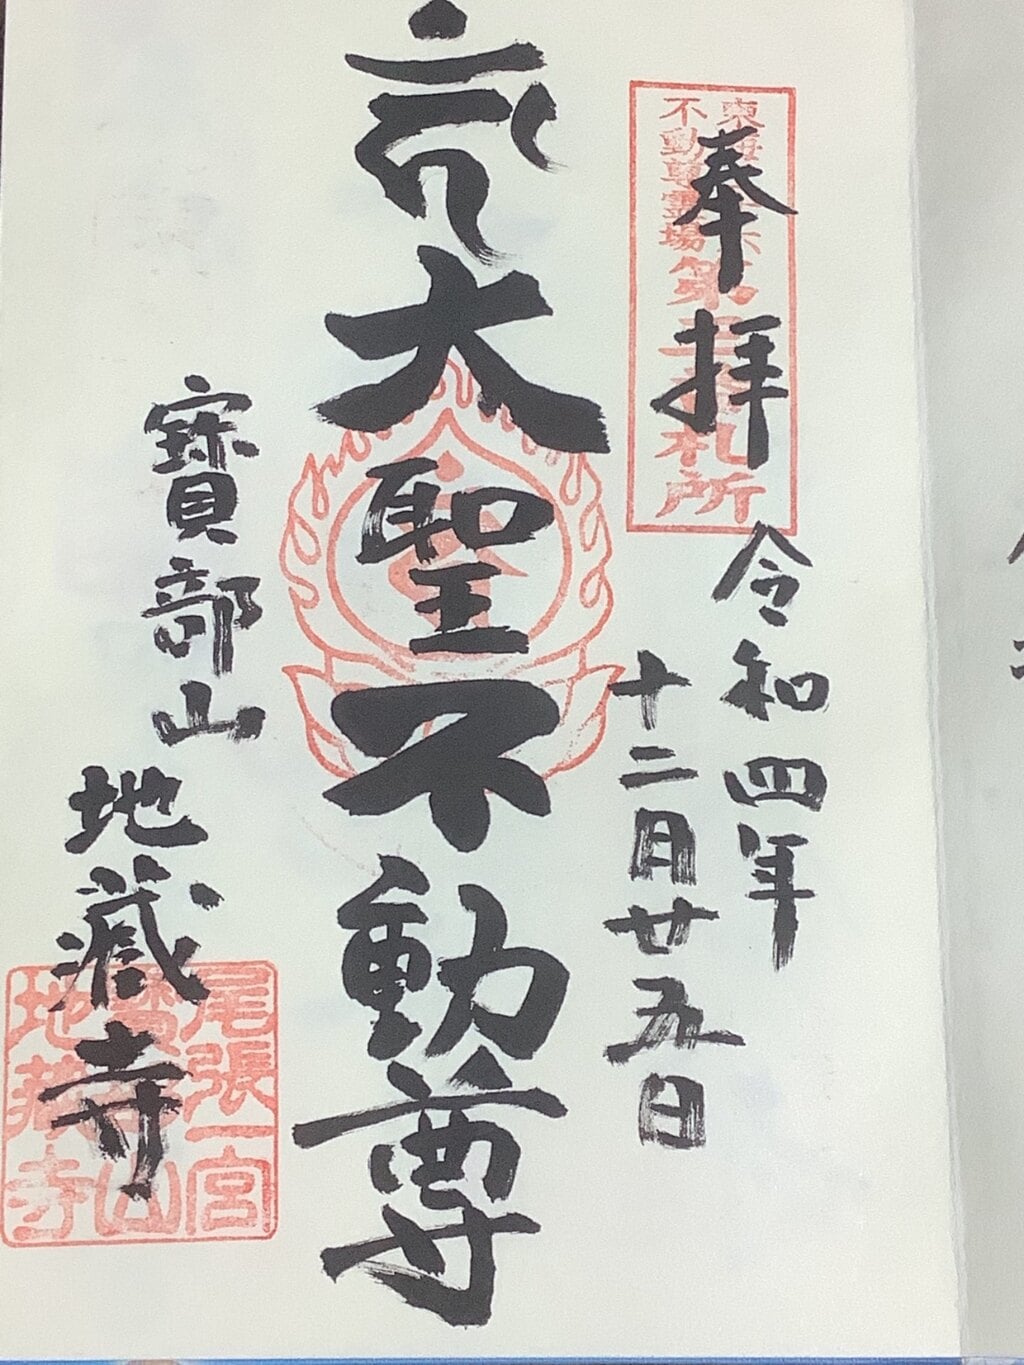 奉拝
東海三十六
不動尊霊場
札所
令和四年
十二月廿五日
大聖不動尊
寶部山
地蔵寺
尾張一宮
山
地蔵寺